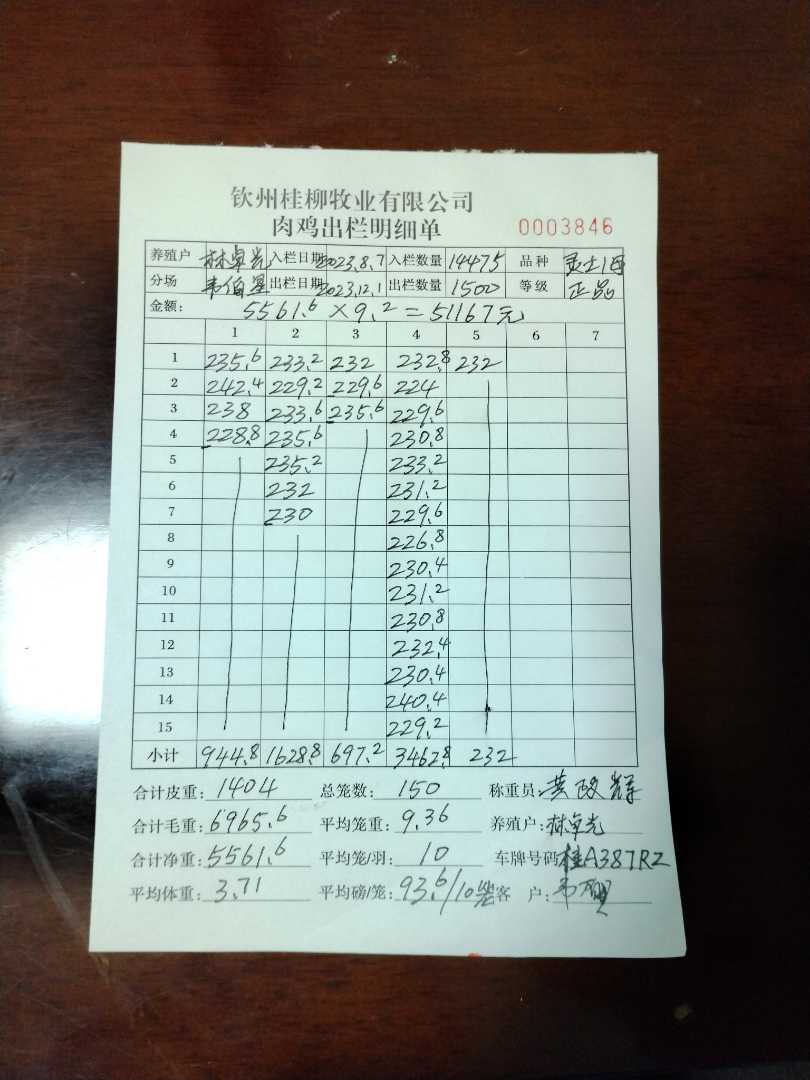 钦州桂柳牧业有限公司
肉鸡出栏明细单 0003846
养殖户 林卓光 入栏日期 2023.8.7 入栏数量 14475 品种
分场 韦伯星 出栏日期 2023.12.1 出栏数量 1500 等级 正品
金额: 5561.6×9.2=51167元
1 2 3 4 5 6 7
1 235.6 233.2 232 232.8 232
2 242.4 229.2 229.6 224
3 238 233.6 235.6 229.6
4 228.8 235.6 230.8
5 235.2 233.2
6 232 231.2
7 230 229.6
8 226.8
9 230.4
10 231.2
11 230.8
12 232.4
13 230.4
14 240.4
15 229.2
小计 944.8 1628.8 697.2 3462.8 232
合计皮重: 1404 总笼数: 150 称重员: 黄政辉
合计毛重: 6965.6 平均笼重: 9.36 养殖户: 林卓光
合计净重: 5561.6 平均笼/羽: 10 车牌号码 桂A387RZ
平均体重: 3.71 平均磅/笼: 93.6/10 客户: